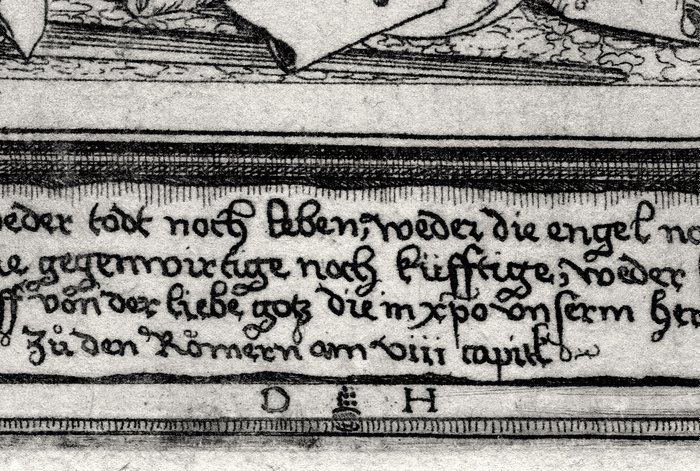 weder todt noch leben, weder die engel no
ie gegenwirtige noch küfftige, weder
ff von der liebe gotz die in xpo vnserm her
Zů den Römern am viii capitl
D H